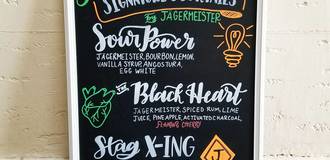 SIGNATURE COCKTAILS
for JÄGERMEISTER
Sour Power
JAGERMEISTER, BOURBON, LEMON,
VANILLA SYRUP, ANGOSTURA,
EGG WHITE
the Black Heart
JAGERMEISTER, SPICED RUM, LIME
JUICE, PINEAPPLE, ACTIVATED CHARCOAL,
FLAMING CHERRY
Stag X-ING